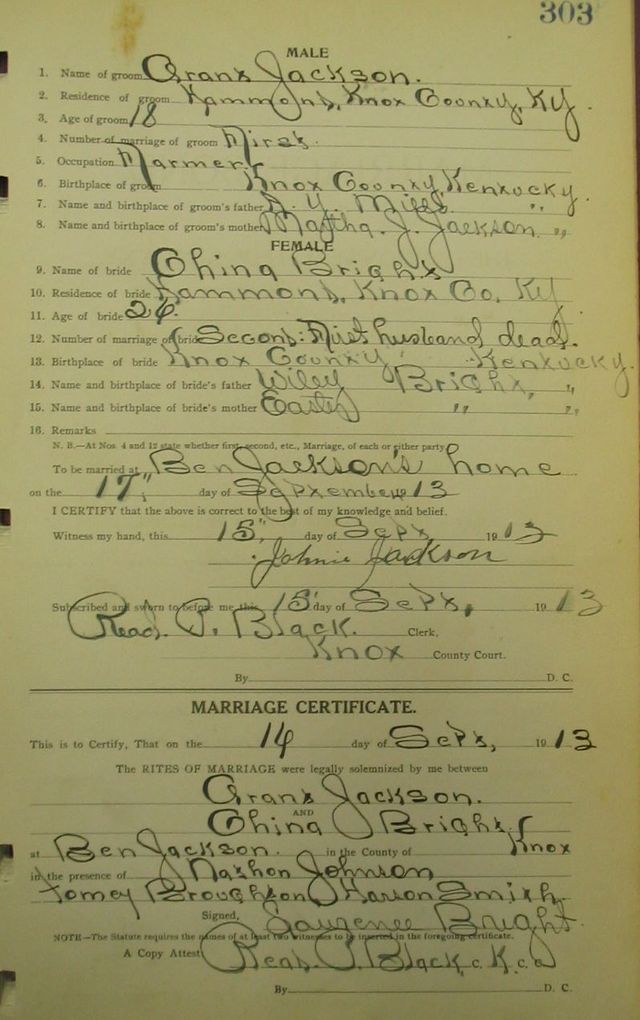 303
MALE
1. Name of groom Grant Jackson.
2. Residence of groom Hammond, Knox County, Ky.
3. Age of groom 18
4. Number of marriage of groom First.
5. Occupation Farmer
6. Birthplace of groom Knox County, Kentucky.
7. Name and birthplace of groom's father A. Y. Mills. "
8. Name and birthplace of groom's mother Martha. J. Jackson. "
FEMALE
9. Name of bride China Bright
10. Residence of bride Hammond, Knox Co, Ky
11. Age of bride 26
12. Number of marriage of bride Second: First husband dead.
13. Birthplace of bride Knox County Kentucky.
14. Name and birthplace of bride's father Wiley Bright, "
15. Name and birthplace of bride's mother " "
16. Remarks
N. B.—At Nos 4 and 12 state whether first, second, etc., Marriage, of each or either party.
To be married at Ben Jackson's home
on the 17", day of September 13
I CERTIFY that the above is correct to the best of my knowledge and belief.
Witness my hand, this 15", day of Sept 1913
Johnie Jackson
Subscribed and sworn to before me this 15" day of Sept, 1913
Read. P. Black. Clerk,
Knox County Court.
By D. C.
MARRIAGE CERTIFICATE.
This is to Certify, That on the 14 day of Sept, 1913
The RITES OF MARRIAGE were legally solemnized by me between
Grant Jackson.
AND
China Bright
at Ben Jackson. in the County of Knox
in the presence of Johnson
Tomey Broughton, Smith
Signed, Bright
NOTE—The Statute requires the names of at least two witnesses to be inserted in the foregoing certificate.
A Copy Attest Read. P. Black, c. K. c. c
By D. C.